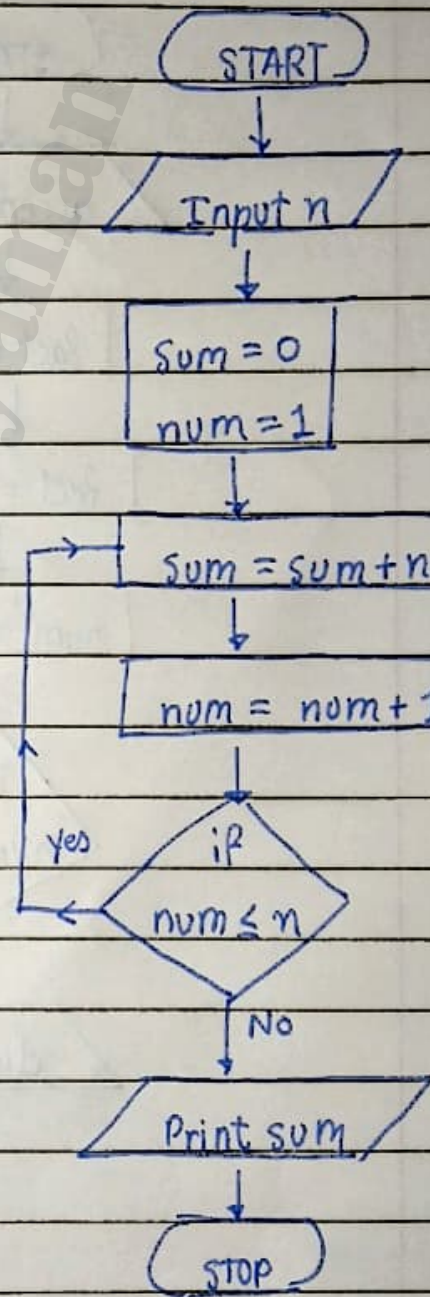 START
Input n
sum = 0
num = 1
sum = sum + n
num = num +
if
num ≤ n
yes
No
Print sum
STOP